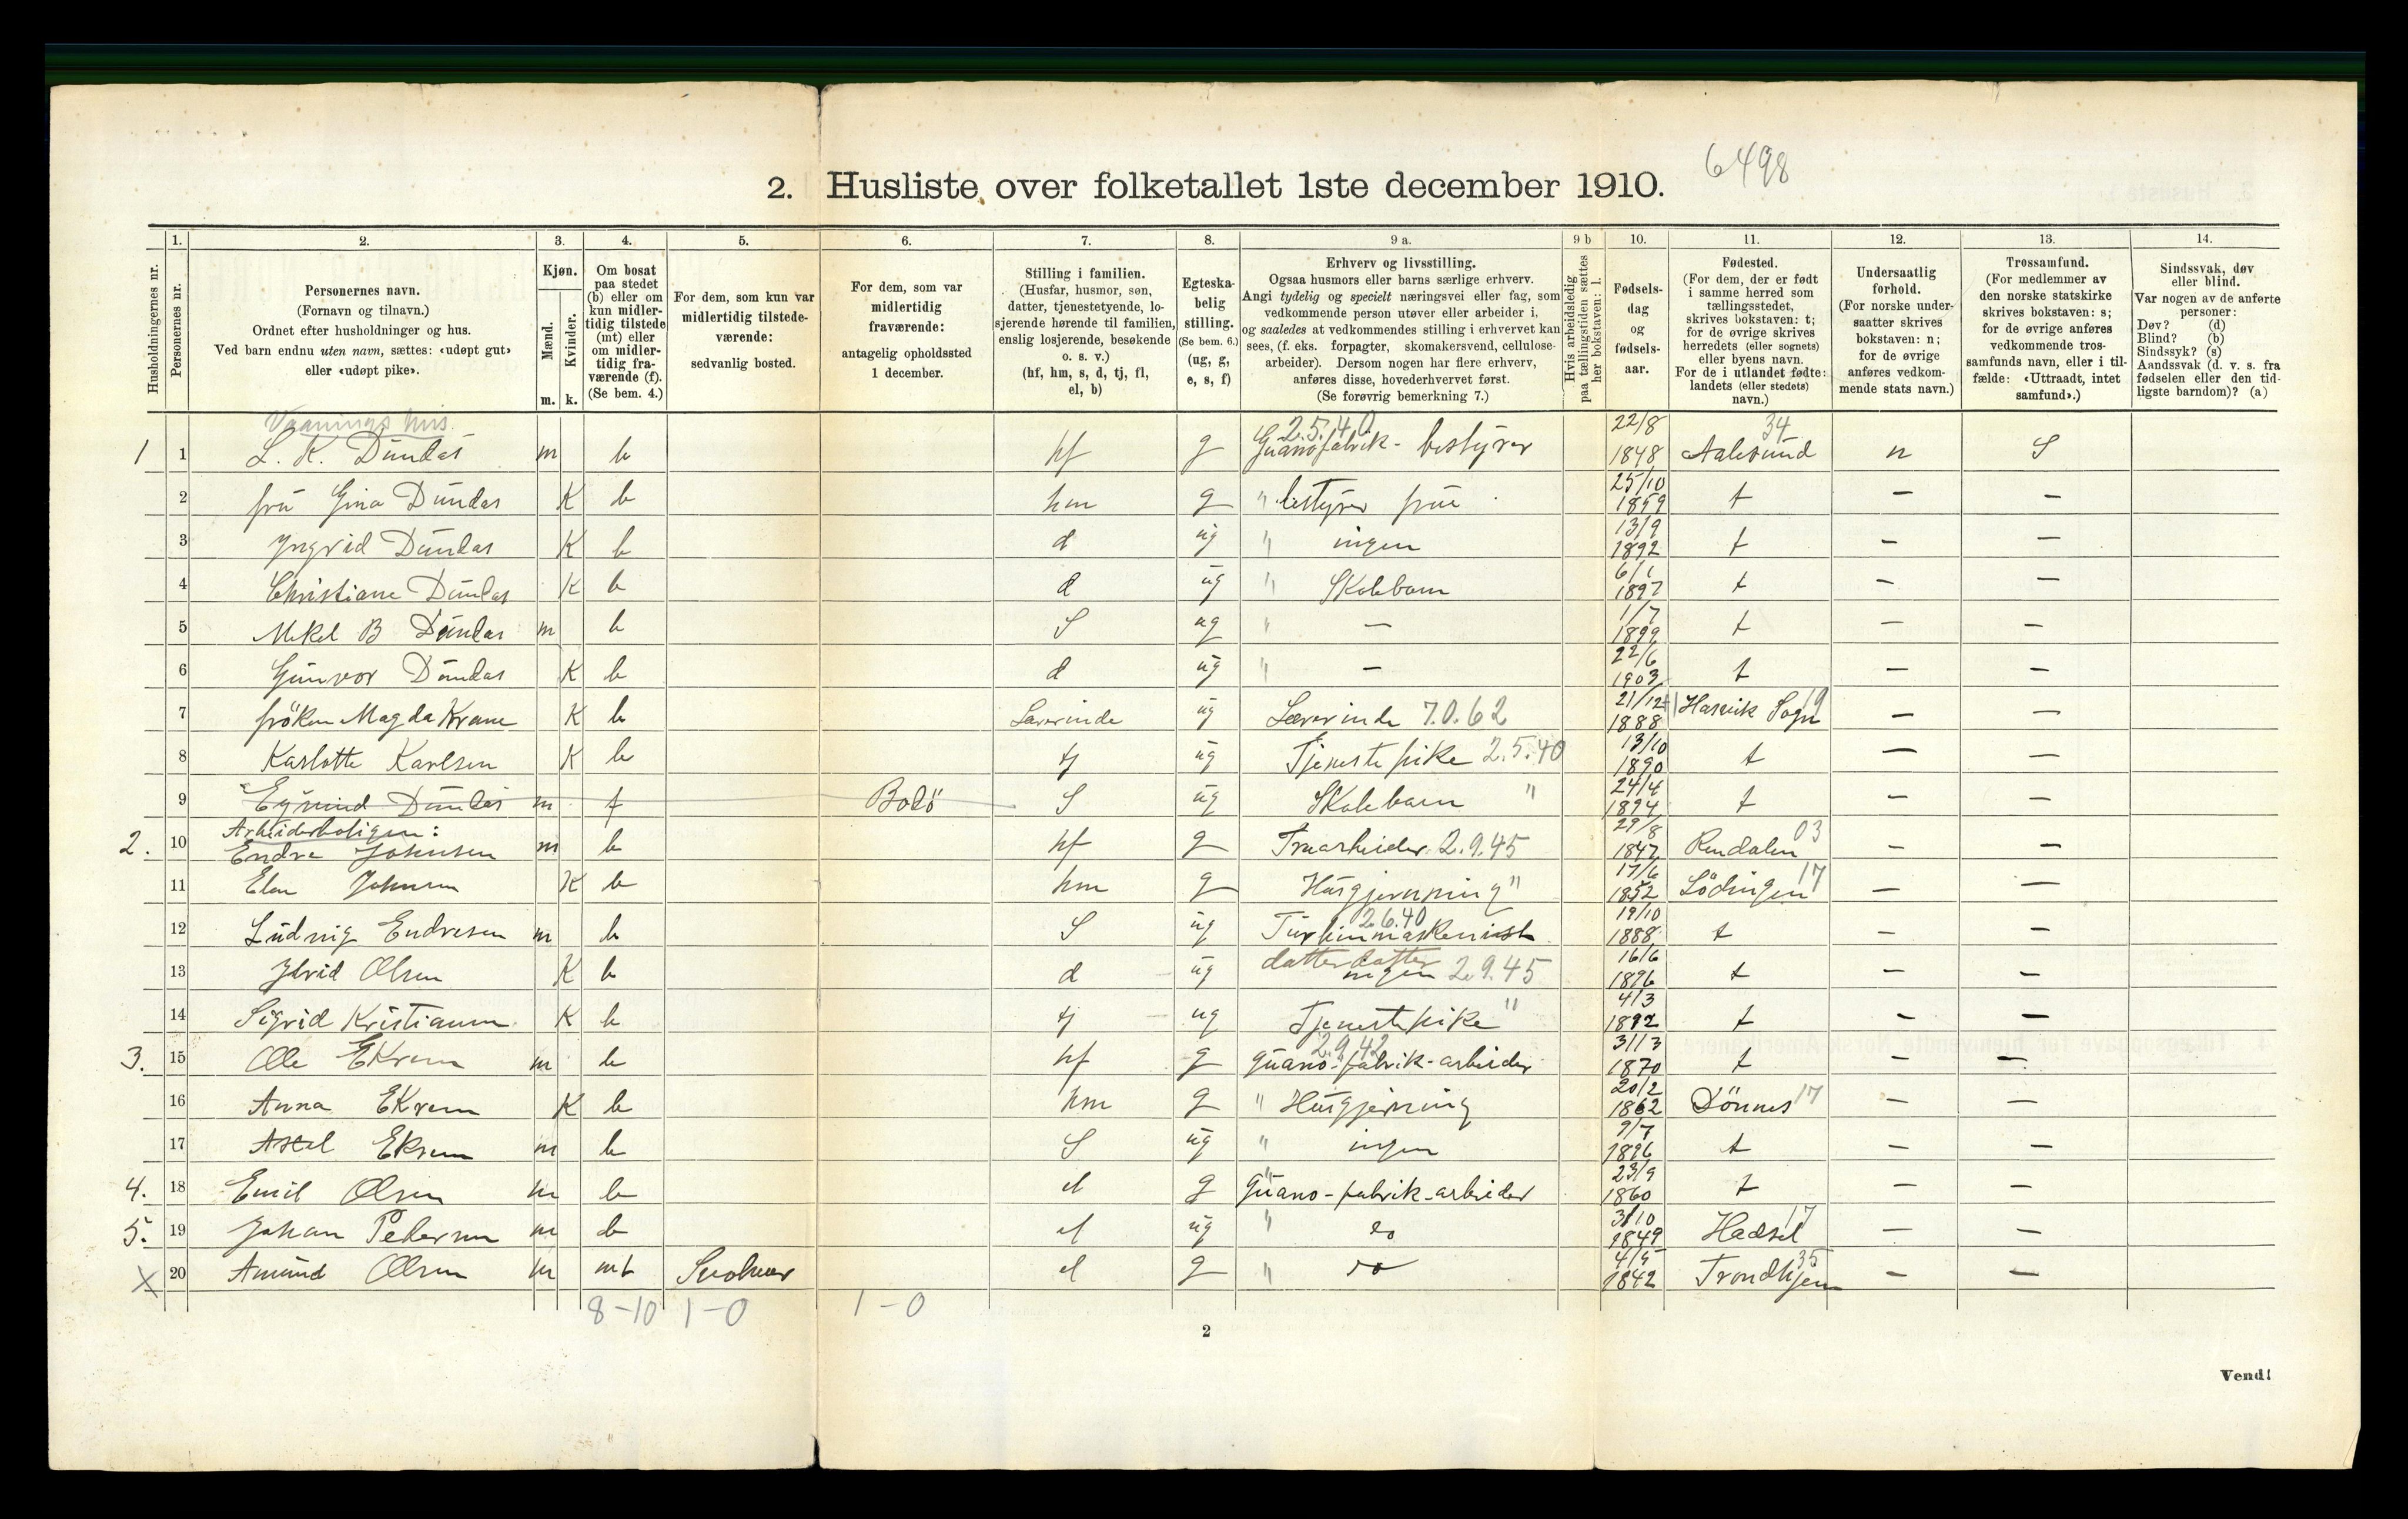 6498
2. Husliste over folketallet 1ste december 1910.
Husholdningernes nr.
1.
Personernes nr.
2.
Personernes navn.
(Fornavn og tilnavn.)
Ordnet efter husholdninger og hus.
Ved barn endnu uten navn, sættes: «udøpt gut»
eller «udøpt pike».
3.
Kjøn.
Mænd.
Kvinder.
m. k.
4.
Om bosat
paa stedet
(b) eller om
kun midler-
tidig tilstede
(mt) eller
om midler-
tidig fra-
værende (f).
(Se bem. 4.)
5.
For dem, som kun var
midlertidig tilstede-
værende:
sedvanlig bosted.
6.
For dem, som var
midlertidig
fraværende:
antagelig opholdssted
1 december.
7.
Stilling i familien.
(Husfar, husmor, søn,
datter, tjenestetyende, lo-
sjerende hørende til familien,
enslig losjerende, besøkende
o. s. v.)
(hf, hm, s, d, tj, fl,
el, b)
8.
Egteska-
belig
stilling.
(Se bem. 6.)
(ug, g,
e, s, f)
9 a.
Erhverv og livsstilling.
Ogsaa husmors eller barns særlige erhverv.
Angi tydelig og specielt næringsvei eller fag, som
vedkommende person utøver eller arbeider i,
og saaledes at vedkommendes stilling i erhvervet kan
sees, (f. eks. forpagter, skomakersvend, cellulose-
arbeider). Dersom nogen har flere erhverv,
anføres disse, hovederhvervet først.
(Se forøvrig bemerkning 7.)
9 b
Hvis arbeidsledig
paa tællingstiden sættes
her bokstaven: l.
10.
Fødsels-
dag
og
fødsels-
aar.
11.
Fødested.
(For dem, der er født
i samme herred som
tællingsstedet,
skrives bokstaven: t;
for de øvrige skrives
herredets (eller sognets)
eller byens navn.
For de i utlandet fødte:
landets (eller stedets)
navn.)
12.
Undersaatlig
forhold.
(For norske under-
saatter skrives
bokstaven: n;
for de øvrige
anføres vedkom-
mende stats navn.)
13.
Trossamfund.
(For medlemmer av
den norske statskirke
skrives bokstaven: s;
for de øvrige anføres
vedkommende tros-
samfunds navn, eller i til-
fælde: «Uttraadt, intet
samfund».)
14.
Sindssvak, døv
eller blind.
Var nogen av de anførte
personer:
Døv? (d)
Blind? (b)
Sindssyk? (s)
Aandssvak (d. v. s. fra
fødselen eller den tid-
ligste barndom)? (a)
Vaanings hus.
1 1 L. K. Dündas m b hf g 2.5.40 Guanofabrik-bestyrer 22/8 1848 Aalesund 34 n S
2 frü Gina Dündas K b hm g " bestyrer frue 25/10 1859 t — —
3 Yngrid Dündas K b d üg " ingen 13/9 1892 t — —
4 Christiane Dündas K b d üg " Skolebarn 6/1 1897 t — —
5 Mekel B Dündas m b S ug " — 1/7 1899 t — —
6 Günvor Dündas K b d üg " — 22/6 1903 t — —
7 fröken Magda Krane K b Lærerinde üg Lærerinde 7.0.62 21/12 1888 Hasvik Sogn 19 — —
8 Karlotte Karlsen K b tj üg Tjenestepike 2.5.40 13/10 1890 t — —
9 Eyvind Dündas m f Bodö S üg Skolebarn " 24/4 1894 t — —
Arbeiderboligen:
2. 10 Endre Johnsen m b hf g 2.9.45 29/8 1847 Rendalen 03 — —
11 Elen Johnsen K b hm g Husgjernning " 17/6 1852 Lödingen 17 — —
12 Lüdvig Endresen m b S üg 2.6.40 Turbinmaskenist 19/10 1888 t — —
13 Olsen K b d üg datterdatter ingen 2.9.45 16/6 1896 t — —
14 Sigrid Kristiansen K b tj ug Tjenestepike " 4/3 1892 t — —
3. 15 Ole Ekrem m b hf g 2.9.42 guano-fabrik-arbeider 31/3 1870 t — —
16 Anna Ekrem K b hm g " Husgjerning 20/2 1862 Dönnes 17 — —
17 Axel Ekrem m b S üg " ingen 9/7 1896 t — —
4. 18 Emil Olsen m b el g guano-fabrik-arbeider 23/9 1860 t — —
5. 19 Johan Pedersen m b el üg " do 3/10 1849 Hadsel 17 — —
X 20 Amünd Olsen m mt Svolvær el g " do 4/5 1842 Trondhjem 35 — —
8-10 1-0 1-0
2
Vend!